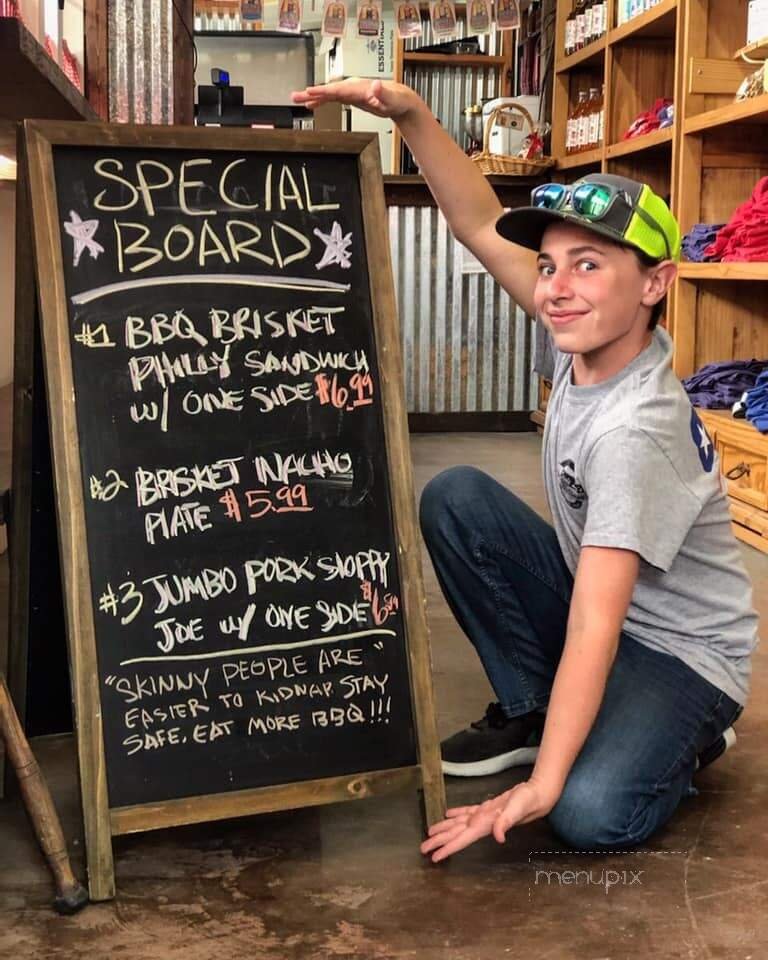 SPECIAL
BOARD
#1 BBQ BRISKET
PHILLY SANDWICH
w/ ONE SIDE $6.99
#2 BRISKET NACHO
PLATE $5.99
#3 JUMBO PORK SLOPPY
JOE w/ ONE SIDE
"SKINNY PEOPLE ARE"
EASIER TO KIDNAP. STAY
SAFE. EAT MORE BBQ!!!
menupix